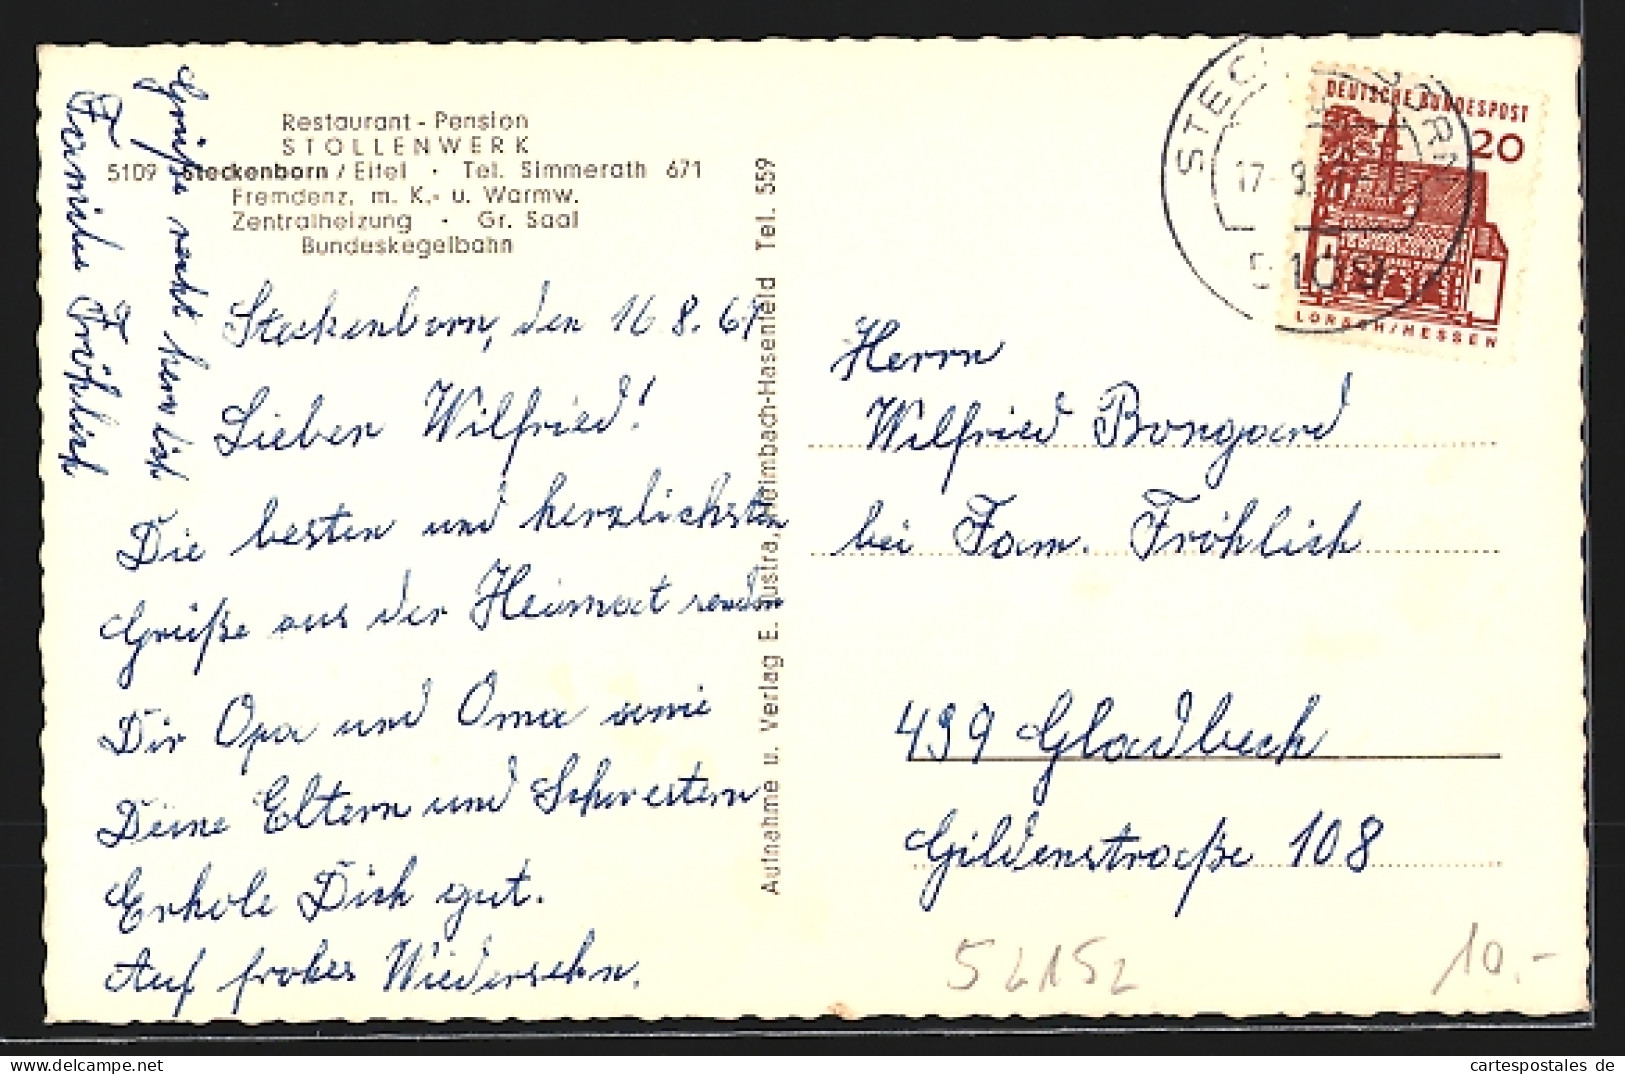 Restaurant - Pension
STOLLENWERK
5109 Steckenborn / Eifel · Tel. Simmerath 671
Fremdenz. m. K.- u. Warmw.
Zentralheizung · Gr. Saal
Bundeskegelbahn
Steckenborn, den 16 8. 67
Lieben Wilfried!
Die besten und herzlichsten
Grüße aus der Heimat senden
Dir Opa und Oma sowie
Deine Eltern und Schwestern
Erhole Dich gut.
Auf frohes Wiedersehn.
Grüße recht herzlich
Familie Fröhlich
Aufnahme u. Verlag E. Justra, Heimbach-Hasenfeld Tel. 559
DEUTSCHE BUNDESPOST
20
LORSCH/HESSEN
5109
Herrn
Wilfried Bongard
bei Fam. Fröhlich
439 Gladbeck
Gildenstraße 108
52152
10.-
cartespostales de